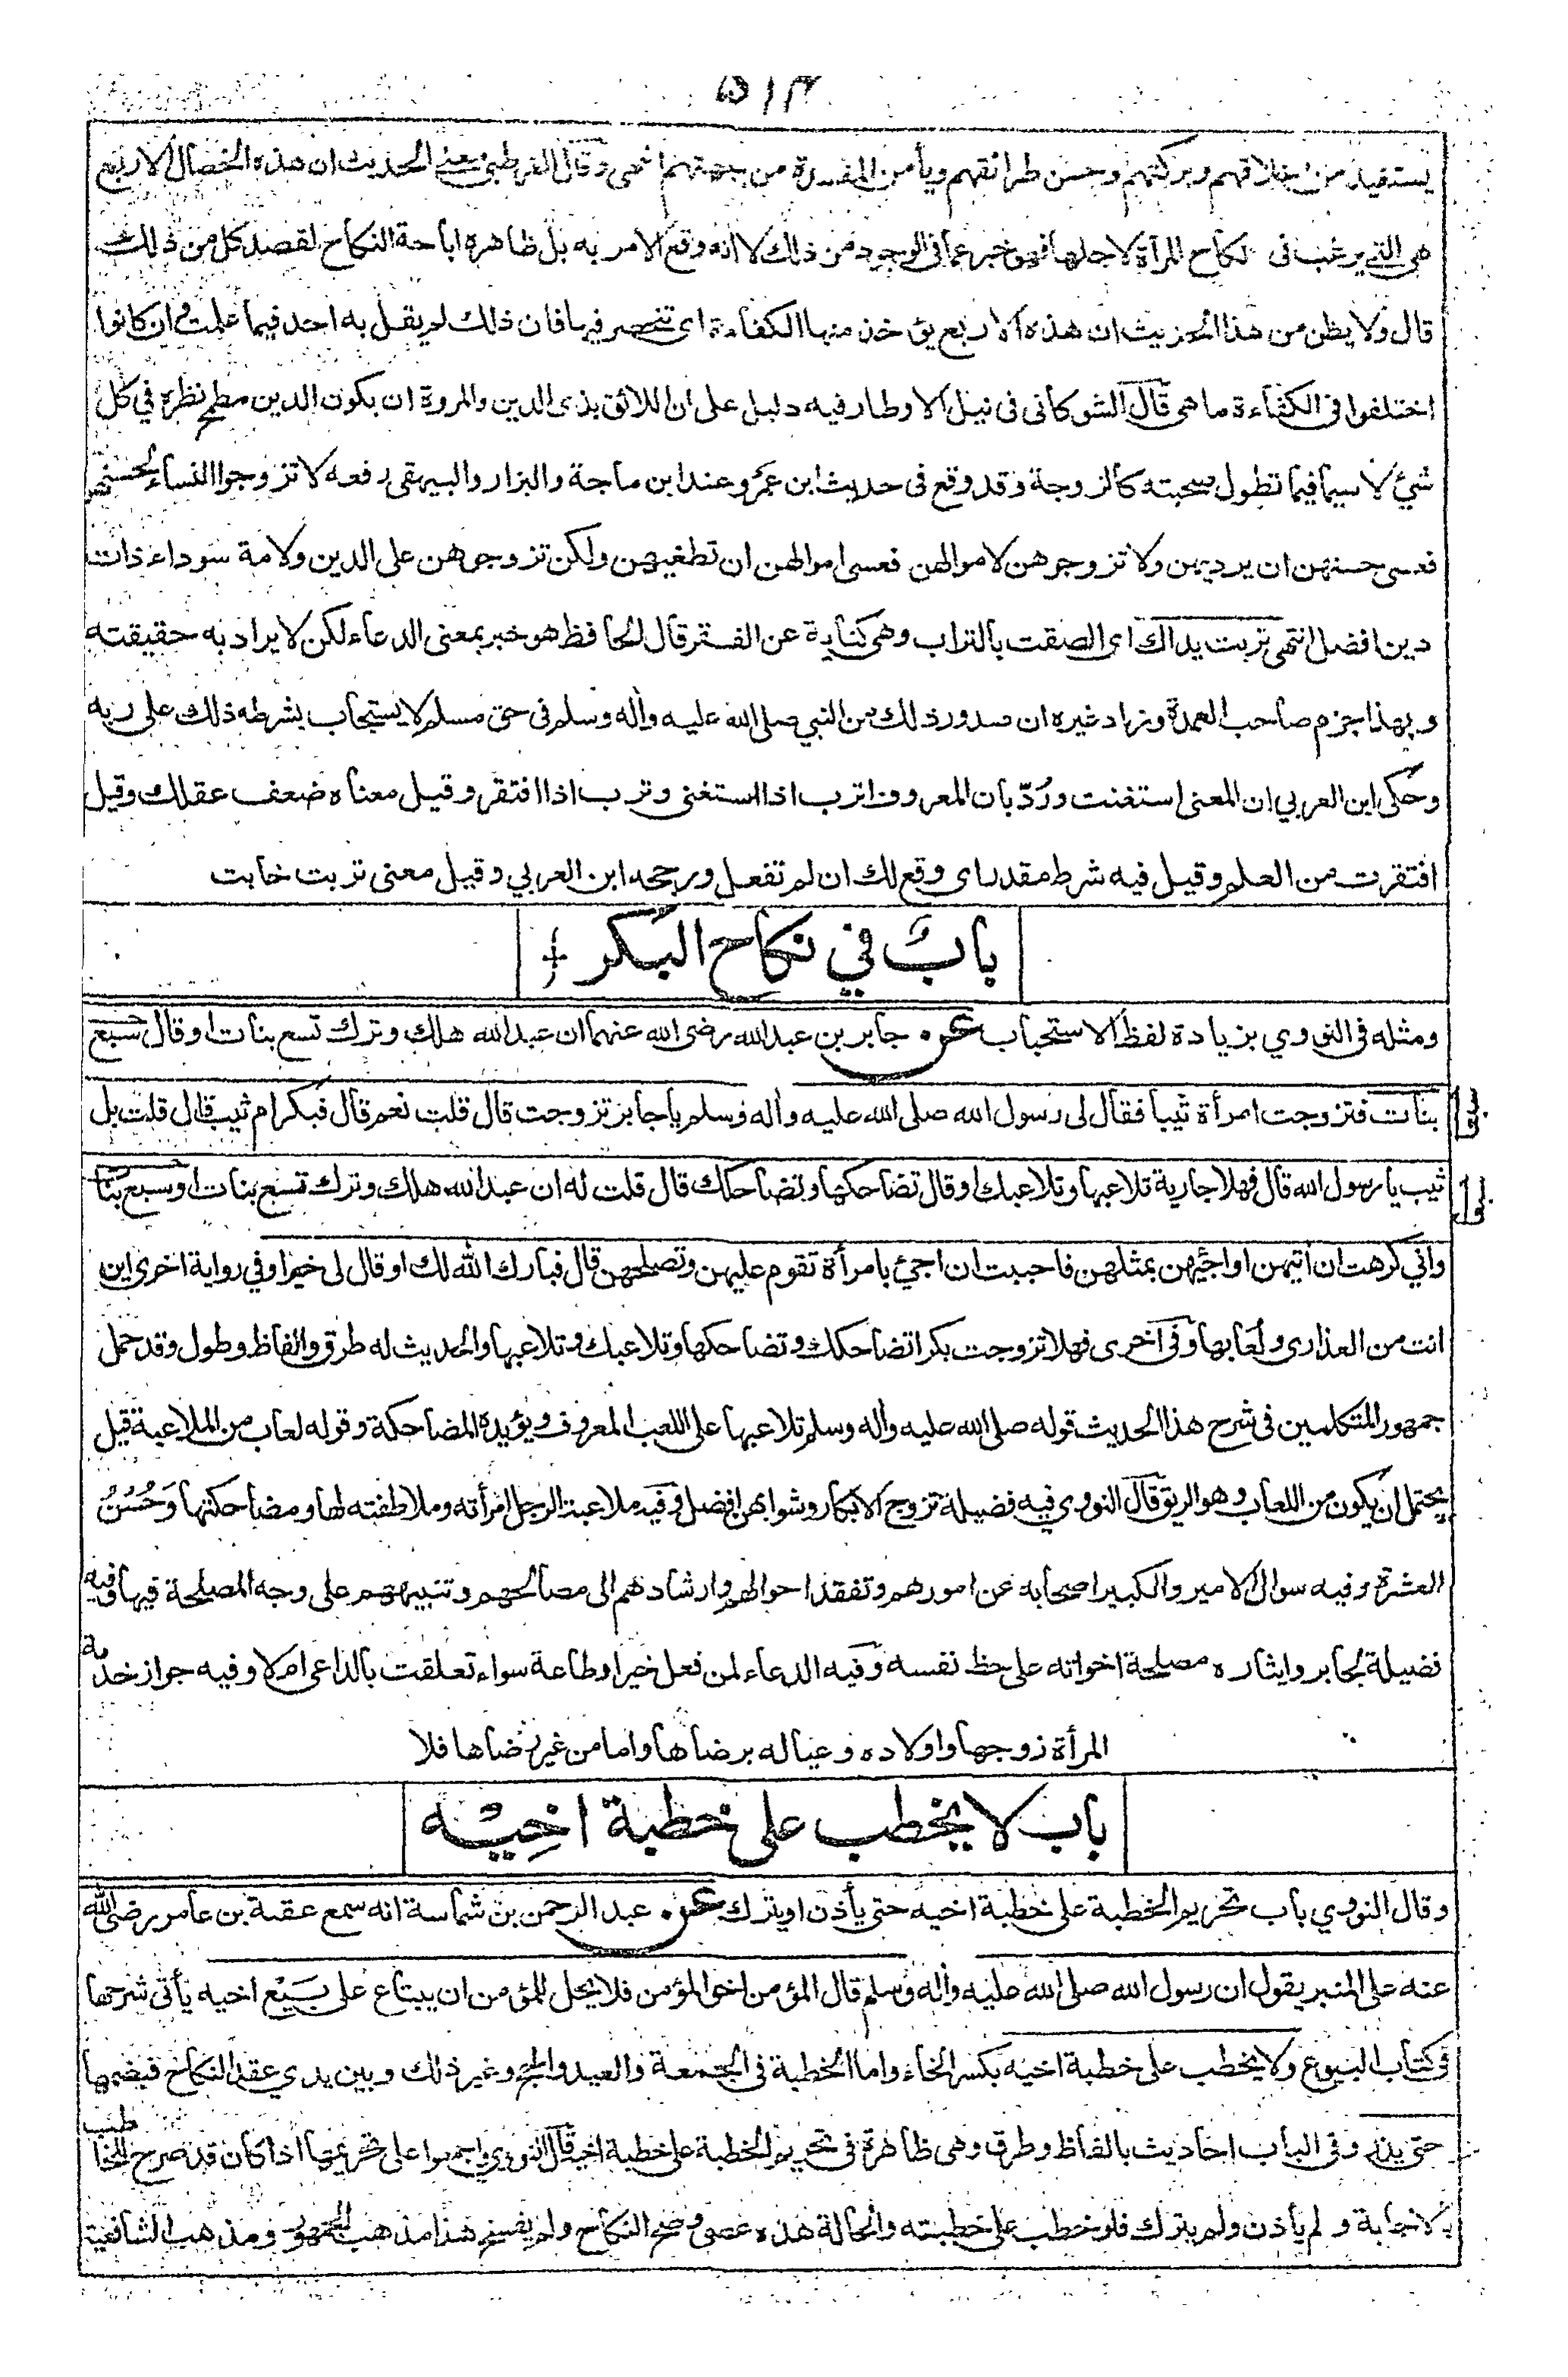 ٥١٣
يستفيد من اخلاقهم وبركتهم وحسن طرائقهم ويأمن المفسدة من جهتهم انتهى وقال القرطبي معنى الحديث ان هذه الخصال الاربع
هى التي يرغب فى نكاح المرأة لاجلها فهو خبر عما فى الوجود من ذلك لا انه وقع الامر به بل ظاهره اباحة النكاح لقصد كل من ذلك
قال ولا يظن من هذا الحديث ان هذه الاربع يؤخذ منها الكفاءة اى تنحصر فيها فان ذلك لم يقل به احد فيما علمت وان كانوا
اختلفوا فى الكفاءة ما هى قال الشوكانى فى نيل الاوطار فيه دليل على ان اللائق بذى الدين والمروة ان يكون الدين مطمح نظره في كل
شئ لا سيما فيما تطول صحبته كالزوجة وقد وقع فى حديث ابن عمرو عند ابن ماجة والبزار والبيهقى رفعه لا تزوجوا النساء لحسنهن
فعسى حسنهن ان يرديهن ولا تزوجوهن لاموالهن فعسى اموالهن ان تطغيهن ولكن تزوجوهن على الدين ولامة سوداء ذات
دين افضل انتهى تربت يداك اى لصقت بالتراب وهى كناية عن الفقر قال الحافظ هو خبر بمعنى الدعاء لكن لا يراد به حقيقته
وبهذا جزم صاحب العمدة وزاد غيره ان صدور ذلك من النبي صلى الله عليه واله وسلم فى حق مسلم لا يستجاب بشرطه ذلك على ربه
وحكى ابن العربي ان المعنى استغنت ورُدّ بان المعروف اترب اذا استغنى وترب اذا افتقر وقيل معناه ضعف عقلك وقيل
افتقرت من العلم وقيل فيه شرط مقدر اى وقع لك ان لم تفعل ورجحه ابن العربي وقيل معنى تربت خابت
بابٌ في نكاح البكر
ومثله فى النووي بزيادة لفظ الاستحباب عن جابر بن عبد الله رضى الله عنهما ان عبد الله هلك وترك تسع بنات او قال سبع
بنات فتزوجت امرأة ثيبا فقال لى رسول الله صلى الله عليه واله وسلم يا جابر تزوجت قال قلت نعم قال فبكر ام ثيب قال قلت بل
ثيب يا رسول الله قال فهلا جارية تلاعبها وتلاعبك او قال تضاحكها وتضاحكك قال قلت له ان عبد الله هلك وترك تسع بنات او سبع بنات
وانى كرهت ان اتيهن او اجيئهن بمثلهن فاحببت ان اجئ بامرأة تقوم عليهن وتصلحهن قال فبارك الله لك او قال لى خيرا وفي رواية اخرى اين
انت من العذارى ولُعابها وفى اخرى فهلا تزوجت بكرا تضاحكك وتضاحكها وتلاعبك وتلاعبها والحديث له طرق والفاظ وطول وقد حمل
جمهور المتكلمين فى شرح هذا الحديث قوله صلى الله عليه واله وسلم تلاعبها على اللعب المعروف ويؤيده المضاحكة وقوله لعاب من الملاعبة قيل
يحتمل ان يكون من اللعاب وهو الريق قال النووي فيه فضيلة تزوج الابكار وثوابهن افضل وفيه ملاعبة الرجل امرأته وملاطفته لها ومضاحكتها وَحُسْنُ
العشرة وفيه سوال الامير والكبير اصحابه عن امورهم وتفقد احوالهم وارشادهم الى مصالحهم وتنبيههم على وجه المصلحة فيها وفيه
فضيلة لجابر وايثاره مصلحة اخواته على حظ نفسه وفيه الدعاء لمن فعل خيرا وطاعة سواء تعلقت بالداعى ام لا وفيه جواز خدمة
المرأة زوجها واولاده وعياله برضاها واما من غير رضاها فلا
باب لا يخطب على خطبة اخِيْه
وقال النووي باب تحريم الخطبة على خطبة اخيه حتى يأذن او يترك عن عبد الرحمن بن شماسة انه سمع عقبة بن عامر رضى الله
عنه على المنبر يقول ان رسول الله صلى الله عليه واله وسلم قال المؤمن اخو المؤمن فلا يحل للمؤمن ان يبتاع على بَيْع اخيه يأتى شرحها
فى كتاب البيوع ولا يخطب على خطبة اخيه بكسر الخاء واما الخطبة فى الجمعة والعيد والحج وغير ذلك وبين يدي عقد النكاح فبضمها
حتى يذر وفى الباب احاديث بالفاظ وطرق وهى ظاهرة فى تحريم الخطبة على خطبة اخيه قال النووي واجمعوا على تحريمها اذا كان قد صرح للخاطب
بالاجابة ولم يأذن ولم يترك فلو خطب على خطبته والحالة هذه عصى وصح النكاح ولم يفسخ هذا مذهب الجمهور ومذهب الشافعية